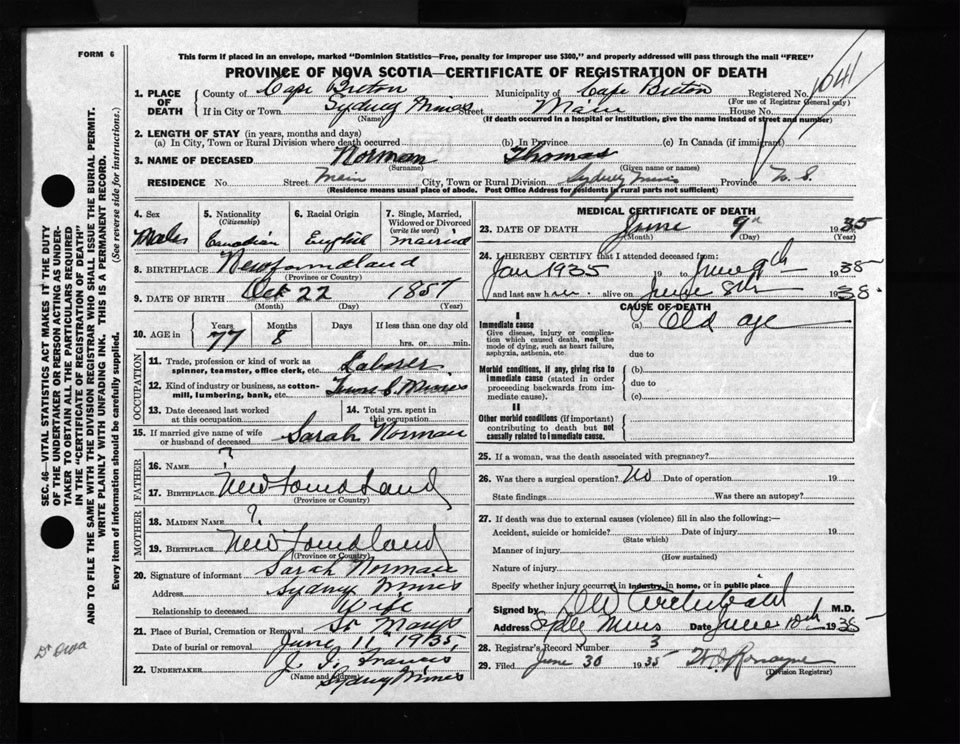 FORM 6
This form if placed in an envelope, marked "Dominion Statistics—Free, penalty for improper use $300," and properly addressed will pass through the mail "FREE"
PROVINCE OF NOVA SCOTIA—CERTIFICATE OF REGISTRATION OF DEATH
1041
1. PLACE OF DEATH { County of Cape Breton Municipality of Cape Breton Registered No.
(For use of Registrar General only)
If in City or Town Sydney Mines Street Main House No.
(Name) (If death occurred in a hospital or institution, give the name instead of street and number)
2. LENGTH OF STAY (in years, months and days)
(a) In City, Town or Rural Division where death occurred (b) In Province (c) In Canada (if immigrant)
3. NAME OF DECEASED Norman Thomas
(Surname) (Given name or names)
RESIDENCE No. Street Main City, Town or Rural Division Sydney Mines Province N. S.
(Residence means usual place of abode. Post Office Address for residents in rural parts not sufficient)
4. Sex Male 5. Nationality (Citizenship) Canadian 6. Racial Origin English 7. Single, Married, Widowed or Divorced (write the word) married
8. BIRTHPLACE Newfoundland
(Province or Country)
9. DATE OF BIRTH Oct 22 1857
(Month) (Day) (Year)
10. AGE in Years 77 Months 8 Days If less than one day old hrs. or min.
OCCUPATION
11. Trade, profession or kind of work as spinner, teamster, office clerk, etc. Laborer
12. Kind of industry or business, as cotton-mill, lumbering, bank, etc. Mines
13. Date deceased last worked at this occupation 14. Total yrs. spent in this occupation
15. If married give name of wife or husband of deceased Sarah Norman
FATHER
16. NAME ?
17. BIRTHPLACE Newfoundland
(Province or Country)
MOTHER
18. MAIDEN NAME ?
19. BIRTHPLACE Newfoundland
(Province or Country)
20. Signature of informant Sarah Norman
Address Sydney Mines
Relationship to deceased Wife
21. Place of Burial, Cremation or Removal St Marys
Date of burial or removal June 11, 1935
22. UNDERTAKER J. J. Francis
(Name and Address) Sydney Mines
MEDICAL CERTIFICATE OF DEATH
23. DATE OF DEATH June 9th 1935
(Month) (Day) (Year)
24. I HEREBY CERTIFY that I attended deceased from:
Jan 1935 19 to June 9th 1935
and last saw him alive on June 8th 1935.
CAUSE OF DEATH
I
Immediate cause (a) Old age
Give disease, injury or complication which caused death, not the mode of dying, such as heart failure, asphyxia, asthenia, etc.
due to
Morbid conditions, if any, giving rise to immediate cause (stated in order proceeding backwards from immediate cause). (b)
due to
(c)
II
Other morbid conditions (if important) contributing to death but not causally related to immediate cause.
25. If a woman, was the death associated with pregnancy?
26. Was there a surgical operation? No Date of operation 19
State findings Was there an autopsy?
27. If death was due to external causes (violence) fill in also the following:—
Accident, suicide or homicide? Date of injury 19
(State which)
Manner of injury
(How sustained)
Nature of injury
Specify whether injury occurred in industry, in home, or in public place
Signed by Archibald M.D.
Address Sydney Mines Date June 10th 1935
28. Registrar's Record Number 3
29. Filed June 30 1935
(Division Registrar)
SEC. 46—VITAL STATISTICS ACT MAKES IT THE DUTY
OF THE UNDERTAKER OR PERSON ACTING AS UNDER-
TAKER TO OBTAIN ALL THE PARTICULARS REQUIRED
IN THE "CERTIFICATE OF REGISTRATION OF DEATH"
AND TO FILE THE SAME WITH THE DIVISION REGISTRAR WHO SHALL ISSUE THE BURIAL PERMIT.
WRITE PLAINLY WITH UNFADING INK. THIS IS A PERMANENT RECORD.
Every item of information should be carefully supplied. (See reverse side for instructions.)